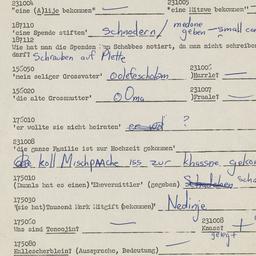 231004
"eine (A)lije bekommen"
231005
"eine Mitzwe bekommen"
187110
'eine Spende stiften' schnodern / medone geben - small
187112
Wie hat man die Spenden am Schabbes notiert, da man nicht schreiben
darf? Schrauben auf Plette
150050
'mein seliger Grossvater'
231006
)Harrle(
150020
'die alte Grossmutter' Oma
231007
)Fraale(
175010
'er wollte sie nicht heiraten' ?
231008
'die ganze Familie ist zur Hochzeit gekommen'
koll Mischpoche iss zur khassne
175010
(Damals hat es einen) 'Ehevermittler' (gegeben)
175030
'(sie hat)tausend Mark Mitgift (bekommen)' Nedinje
175060
Was sind Tenoojin?
231008
Knass?
gelegt
175080
Kallescherblein? (Aussprache, Bedeutung)